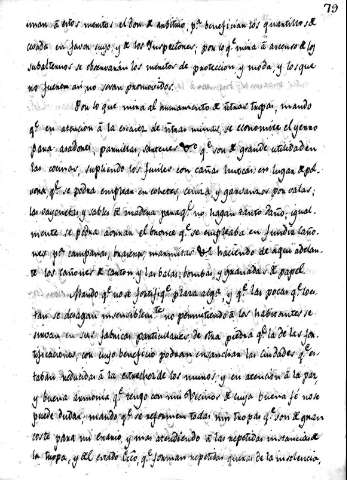 79
unan à estos meritos el don de arbitrio, pª beneficiar los quantillos de
en favor suyo, y de los Inspectores, por lo q.e mira à ascensos de los
subalternos se observarán los meritos de proteccion y moda, y los que
no fuesen asi no seran promovidos.
Por lo que mira al armamento de ntras Tropas, mando
q.e en atencion à la escasez de ntras minas, se economize el yerro
para aradores, parrillas, sartenes &c q.e son de grande utilidad en
las cocinas, supliendo los fusiles con cañas huecas: en lugar de pol
vora q.e se podra emplear en cohetes, ceniza y garvanzos por valas,
las vayonetas y sables de madera para q.e no hagan tanto daño, igual
mente se podra ahorrar el bronce q.e se empleaba en fundir caño
nes pª campanas, braseros, marmitas &c haciendo de aqui adelan
te los cañones de carton y las balas, bombas, y granadas de papel.
Mando q.e no se fortifiq.e plaza alga y q.e las pocas q.e exis
tan se desagan insensiblem.te permitiendo à los habitantes se
sirvan en sus fabricas particulares de otra piedra q.e la de las for
tificaciones con cuyo beneficio podran ensanchar las ciudades q.e es
taban reducidas à la estrechez de los muros, y en atencion à la paz
y buena armonia q.e tengo con mis Vecinos de cuya buena fé no se
puede dudar, mando q.e se reformen todas mis tropas q.e son de gran
coste para mi erario, y mas atendiendo à las repetidas instancias de
la tropa, y del estado q.e forman repetidas quexas de la insolencia,